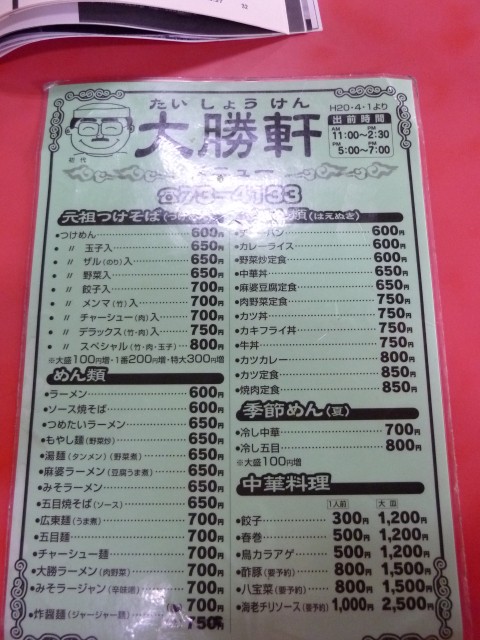 たいしょうけん
大勝軒
初代
H20・4・1より
出前時間
AM PM
11:00〜2:30
PM PM
5:00〜7:00
ニュー
☎73-4133
元祖つけそば
•つけめん 600円
• 〃 玉子入 650円
• 〃 ザル(のり)入 650円
• 〃 野菜入 650円
• 〃 餃子入 700円
• 〃 メンマ(竹)入 700円
• 〃 チャーシュー(肉)入 700円
• 〃 デラックス(竹・肉)入 750円
• 〃 スペシャル(竹・肉・玉子) 800円
※大盛100円増・1番200円増・特大300円増
めん類
•ラーメン 600円
•ソース焼そば 600円
•つめたいラーメン 650円
•もやし麺(野菜炒) 650円
•湯麺(タンメン)(野菜煮) 650円
•麻婆ラーメン(豆腐うま煮) 650円
•みそラーメン 650円
•五目焼そば(ソース) 650円
•広東麺(うま煮) 700円
•五目麺 700円
•チャーシュー麺 700円
•大勝ラーメン(肉野菜) 700円
•みそラージャン(辛味噌) 700円
•炸醤麺(ジャージャー麺) 750円
類(はえぬき)
ハン 600円
•カレーライス 600円
•野菜炒定食 600円
•中華丼 650円
•麻婆豆腐定食 650円
•肉野菜定食 750円
•カツ丼 750円
•カキフライ丼 750円
•牛丼 750円
•カツカレー 800円
•カツ定食 850円
•焼肉定食 850円
季節めん(夏)
•冷し中華 700円
•冷し五目 800円
※大盛100円増
中華料理
1人前 大皿
•餃子 300円 1,200円
•春巻 500円 1,200円
•鳥カラアゲ 500円 1,200円
•酢豚(要予約) 800円 1,500円
•八宝菜(要予約) 800円 1,500円
•海老チリソース(要予約) 1,000円 2,500円